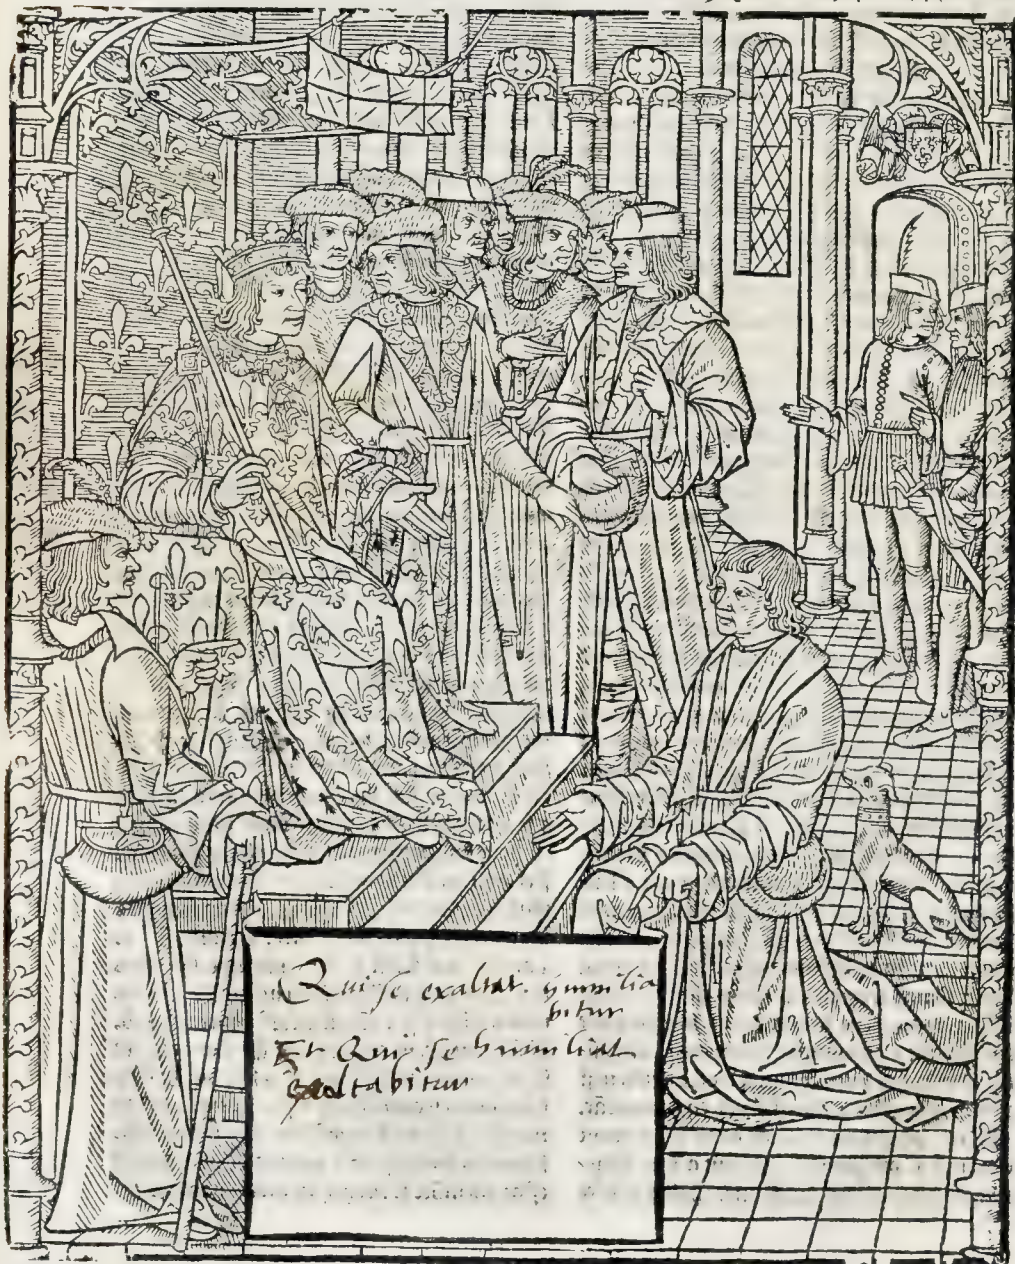 Qui se exaltat humilia
bitur
Et Qui se humiliat
exaltabitur